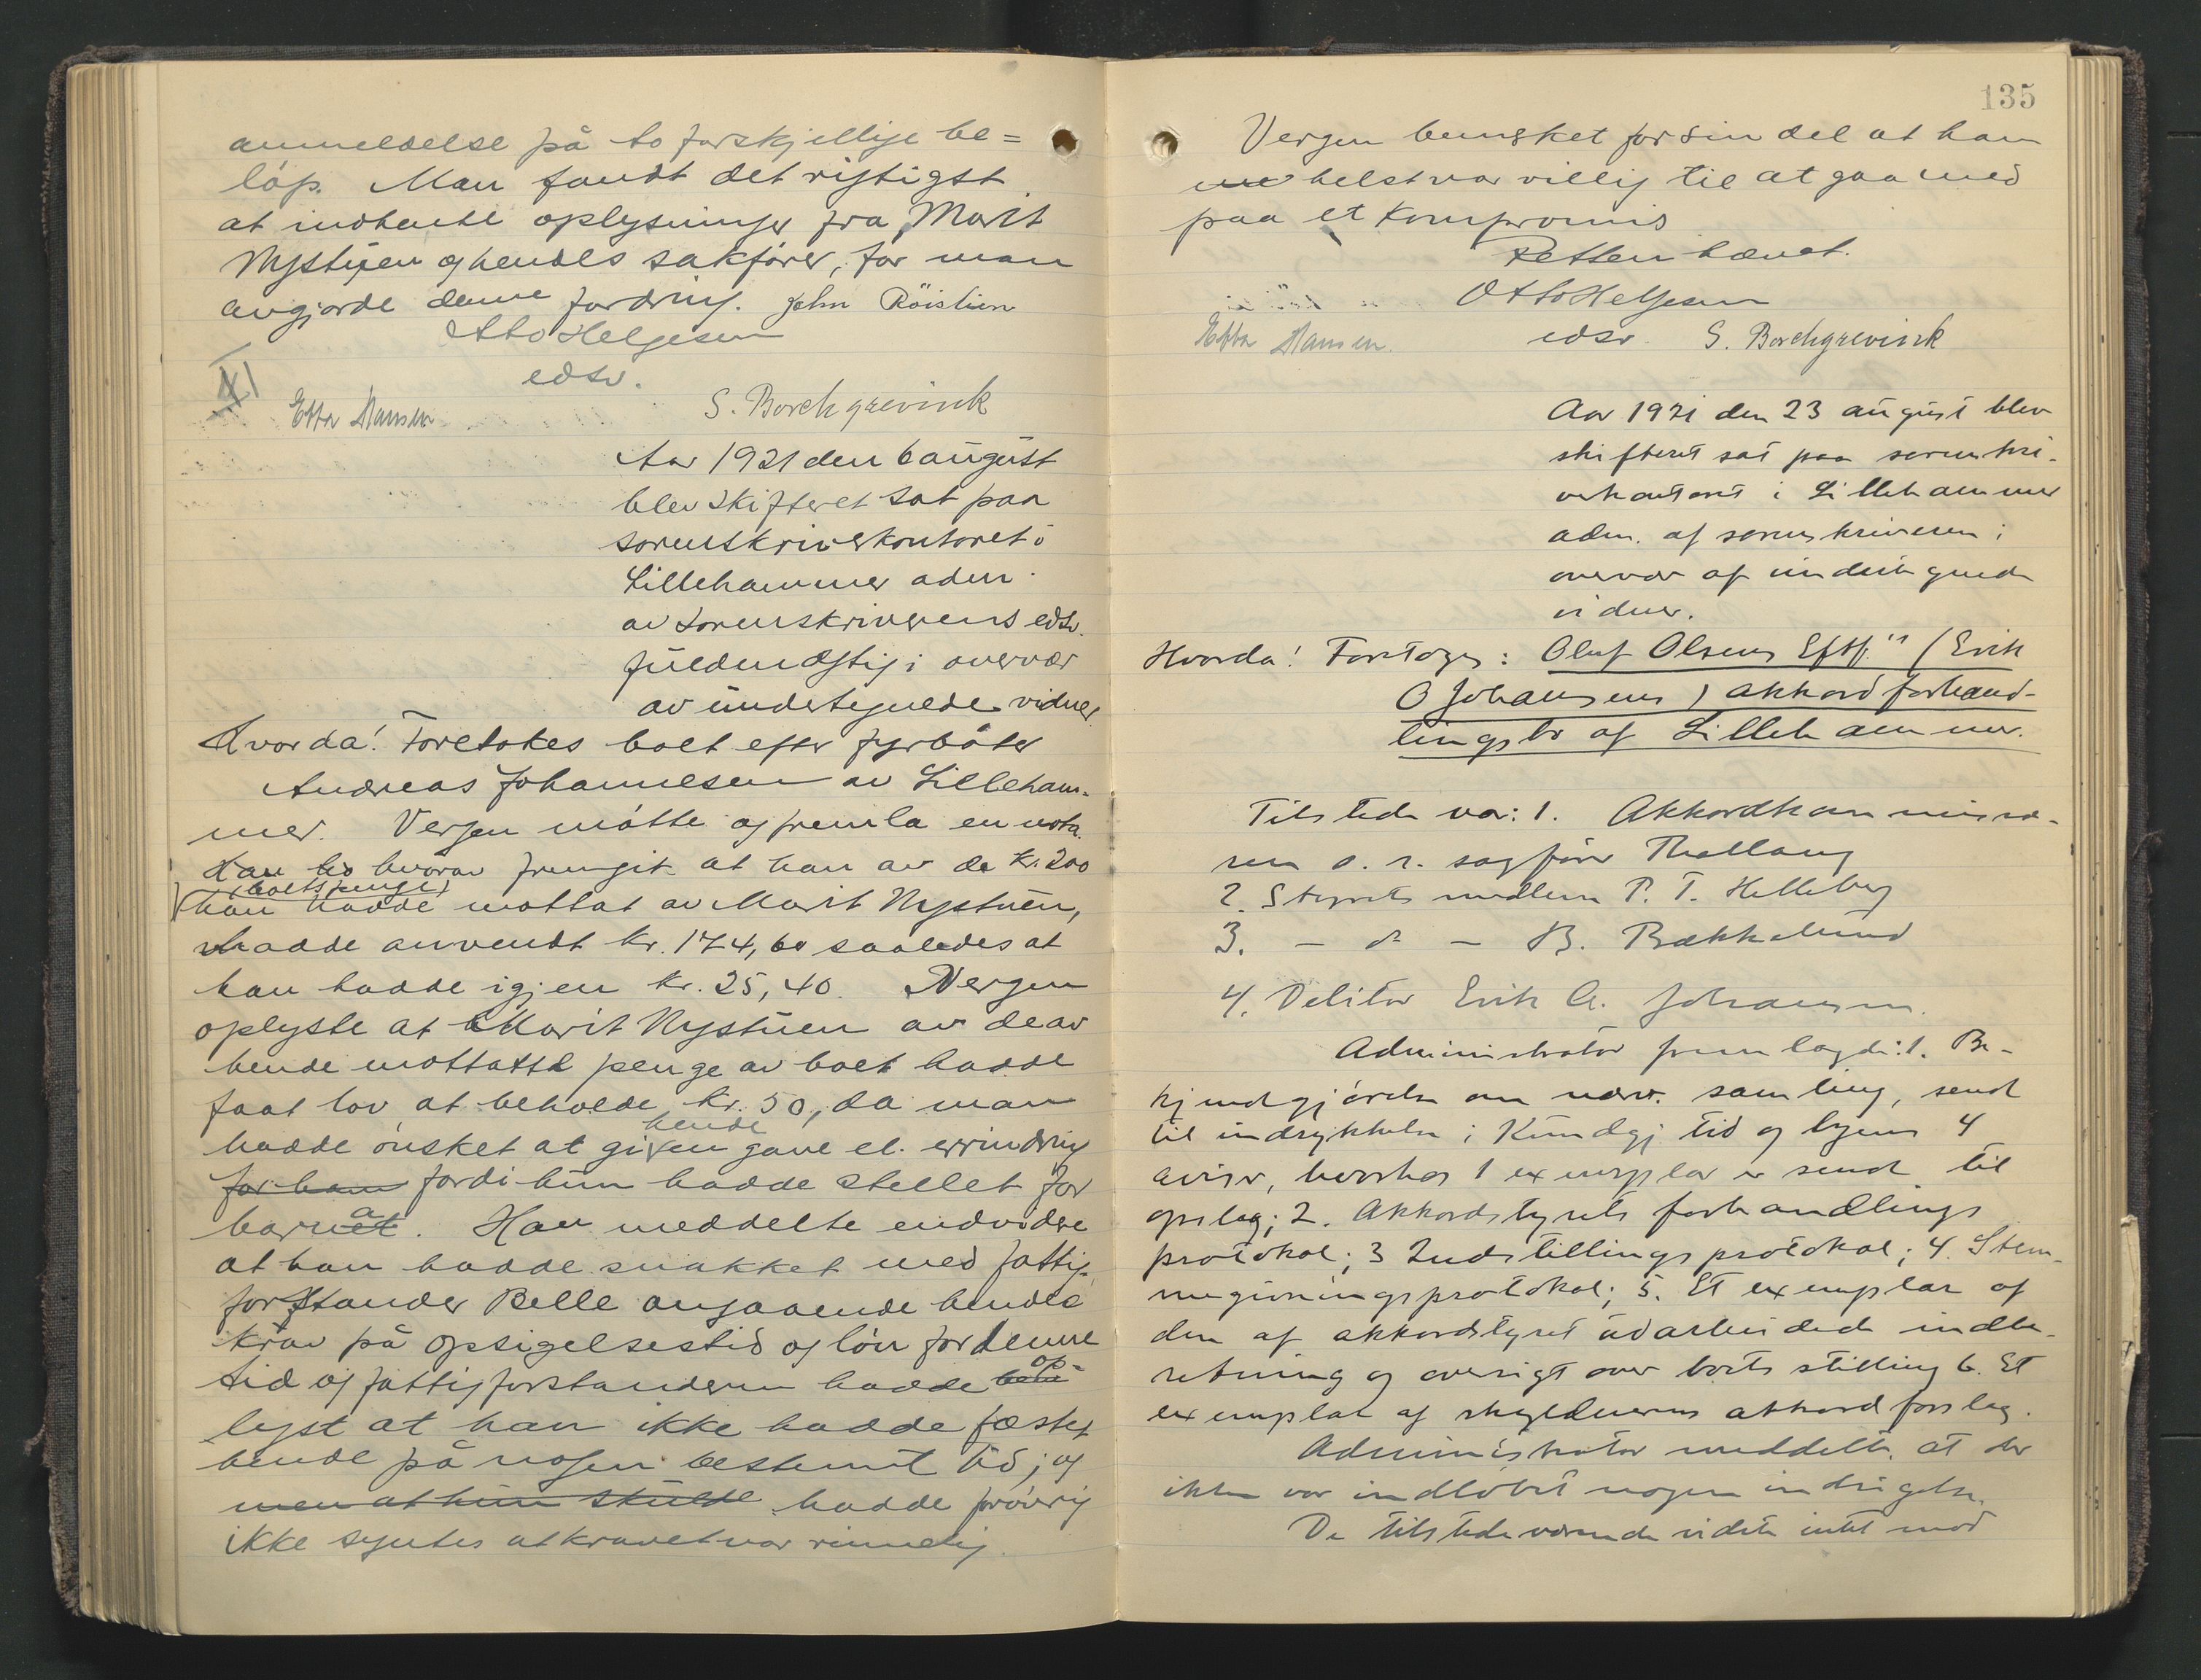 anmeldelse på to forskjellige be=
løp. Man fandt det rigtigst
at indhente oplysninger fra Marit
Nystuen og hendes sakfører, før man
avgjorde denne fordring. John Röislien
Otto Helgesen
edsv.
XI
Ebba Hansen S. Borchgrevink
Aar 1921 den 6 august
blev skifteret sat paa
sorenskriverkontoret i
Lillehammer adm.
av sorenskriverens edsv.
fuldmægtig i overvær
av undertegnede vidner
Hvorda! Foretokes boet efter fyrbøter
Andreas Johannesen av Lilleham-
mer. Vergen møtte og fremla en nota.
hvorav fremgik at han av de kr. 200
(boets penge)
han hadde mottat av Marit Nystuen,
hadde anvendt kr. 174,60 saaledes at
han hadde igjen kr. 25,40. Vergen
oplyste at Marit Nystuen av de av
hende mottatte penge av boet hadde
faat lov at beholde kr. 50, da man
hende
hadde ønsket at gi en gave el. erindring
for ham fordi hun hadde stellet for
barna. Han meddelte endvidere
at han hadde snakket med fattig-
forstander Belle angaaende hendes
krav på opsigelsestid og løn for denne
tid og fattigforstanderen hadde op-
lyst at han ikke hadde fæstet
hende på nogen bestemt tid; og
men at hun skulde hadde forøvrig
ikke syntes at kravet var rimelig.
135
Vergen bemerket for sin del at han
helst var villig til at gaa med
paa et kompromis
Retten hævet.
Otto Helgesen
Ebba Hansen. edsv. S. Borchgrevink
Aar 1921 den 23 august blev
skifteret sat paa sorenskri-
verkontoret i Lillehammer
adm. af sorenskriveren i
overvær af undertegnede
vidner.
Hvorda! Foretoges: Oluf Olsens Eftf." (Erik
O Johansens) akkordforhand-
lingsbo af Lillehammer.
Tilstede var: 1. Akkordkommissæ-
ren o. r. sagfører Thallaug
2. Styrets medlem P. T. Helleberg
3. - do - B. Bækkelund
4. Debitor Erik O. Johansen.
Administrator fremlagde: 1. Be-
kjendtgjørelse om nærv. samling, sendt
til indrykkelse i Kundgj tid og byens 4
aviser, hvorhos 1 exemplar er sendt til
opslag; 2. Akkordstyrets forhandlings
protokol; 3 Indstillingsprotokol; 4. Stem-
megivningsprotokol; 5. Et exemplar af
den af akkordstyret udarbeidede indbe-
retning og oversigt over boets stilling 6. Et
exemplar af skyldnerens akkordforslag.
Administrator meddelte, at der
ikke var indløbet nogen indsigelse.
De tilstedeværende vidste intet mod